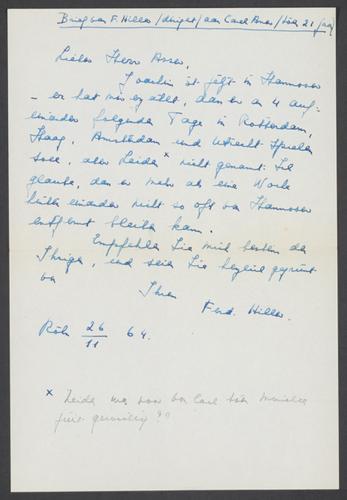 Brief van F. Hiller / dirigent / aan Carel Asser / Köln 21
Lieber Herr Asser.
Joachim ist jetzt in Hannover
– er hat mir erzählt, dass er an 4 auf-
einander folgenden Tagen in Rotterdam,
Haag, Amsterdam und Utrecht spielen
solle, aber Leiden x nicht genannt. Ich
glaube, dass er mehr als eine Woche
hinter einander nicht so oft von Hannover
entfernt bleiben kann.
Empfehlen Sie mich bestens den
Ihrigen, und seien Sie herzlich gegrüsst
von
Ihrem
Ferd. Hiller.
Köln 26/11 64.
x Leiden was voor Carel